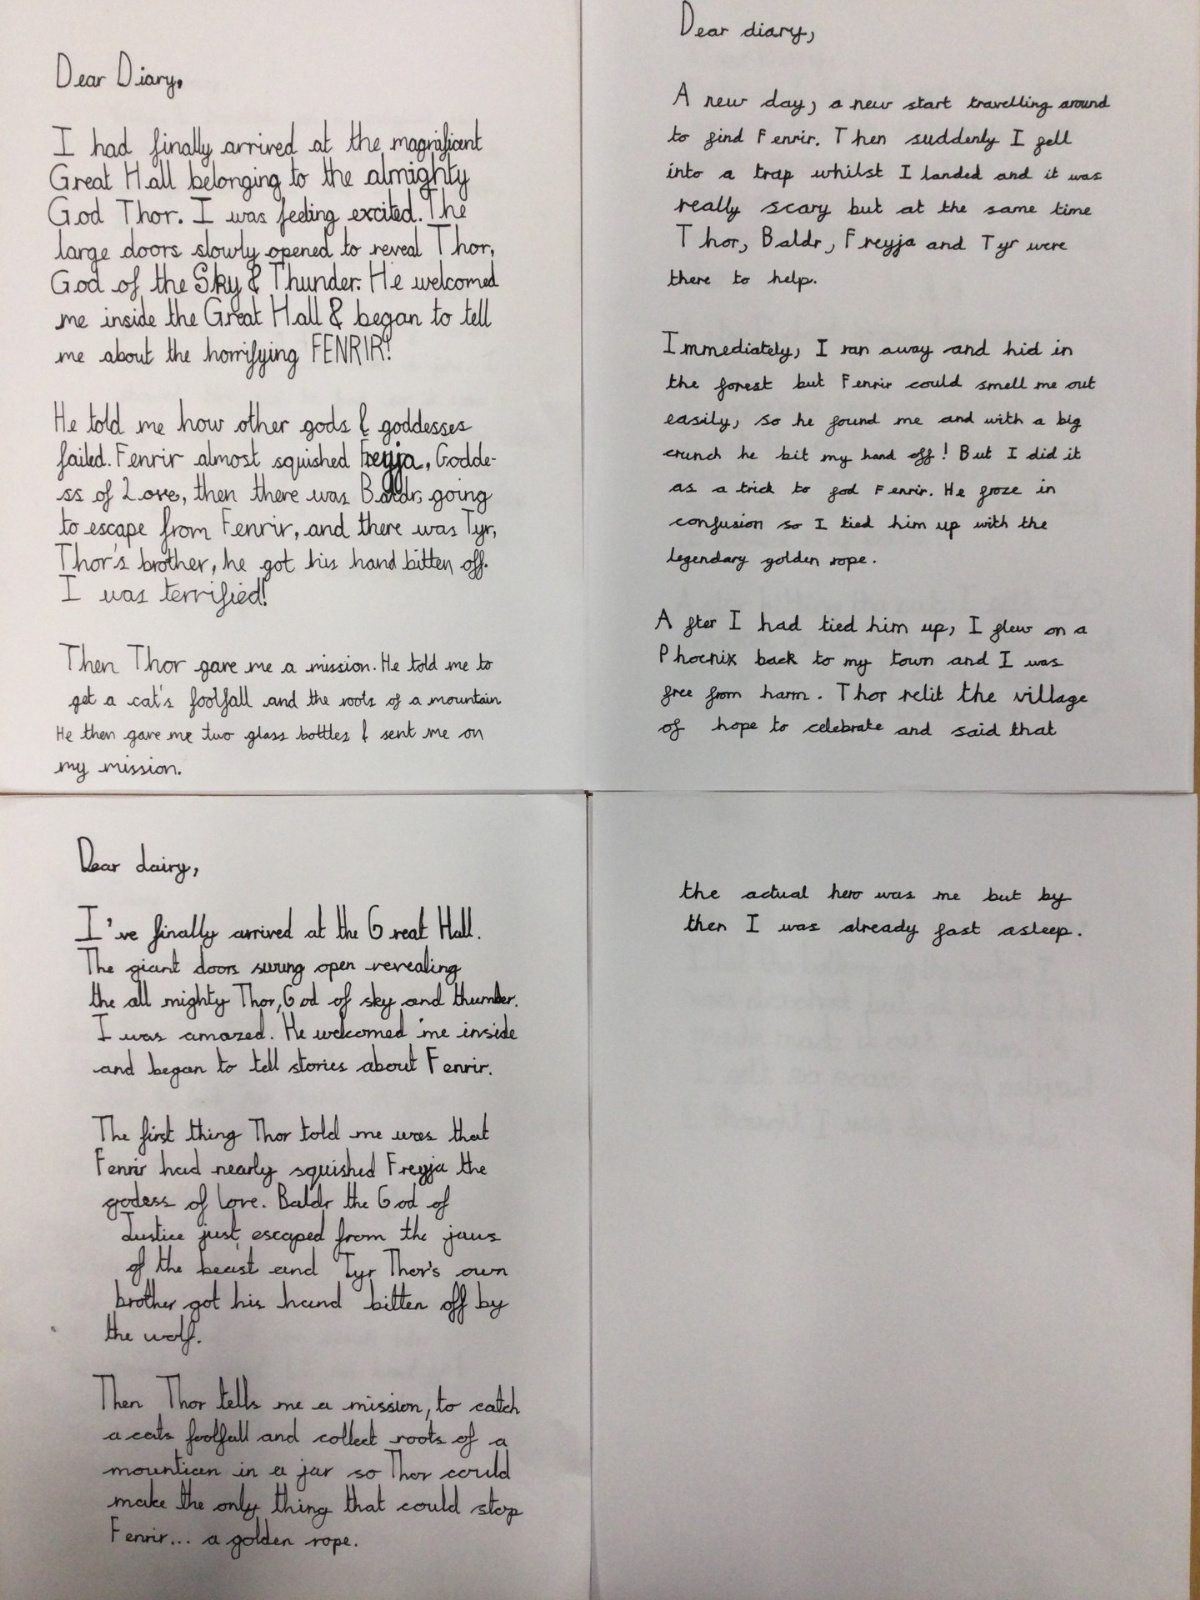 Dear Diary,
I had finally arrived at the magnificent
Great Hall belonging to the almighty
God Thor. I was feeling excited. The
large doors slowly opened to reveal Thor,
God of the Sky & Thunder. He welcomed
me inside the Great Hall & began to tell
me about the horrifying FENRIR!
He told me how other gods & goddesses
failed. Fenrir almost squished Freyja, Godde-
ss of Love, then there was Baldr, going
to escape from Fenrir, and there was Tyr,
Thor's brother, he got his hand bitten off.
I was terrified!
Then Thor gave me a mission. He told me to
get a cat's footfall and the roots of a mountain
He then gave me two glass bottles & sent me on
my mission.
Dear diary,
A new day, a new start travelling around
to find Fenrir. Then suddenly I fell
into a trap whilst I landed and it was
really scary but at the same time
Thor, Baldr, Freyja and Tyr were
there to help.
Immediately, I ran away and hid in
the forest but Fenrir could smell me out
easily, so he found me and with a big
crunch he bit my hand off! But I did it
as a trick to fod Fenrir. He froze in
confusion so I tied him up with the
legendary golden rope.
After I had tied him up, I flew on a
Phoenix back to my town and I was
free from harm. Thor relit the village
of hope to celebrate and said that
Dear dairy,
I've finally arrived at the Great Hall.
The giant doors swung open revealing
the all mighty Thor, God of sky and thunder.
I was amazed. He welcomed me inside
and began to tell stories about Fenrir.
The first thing Thor told me was that
Fenrir had nearly squished Freyja the
godess of love. Baldr the God of
Justice just escaped from the jaws
of the beast and Tyr Thor's own
brother got his hand bitten off by
the wolf.
Then Thor tells me a mission, to catch
a cats footfall and collect roots of a
mountian in a jar so Thor could
make the only thing that could stop
Fenrir... a golden rope.
the actual hero was me but by
then I was already fast asleep.